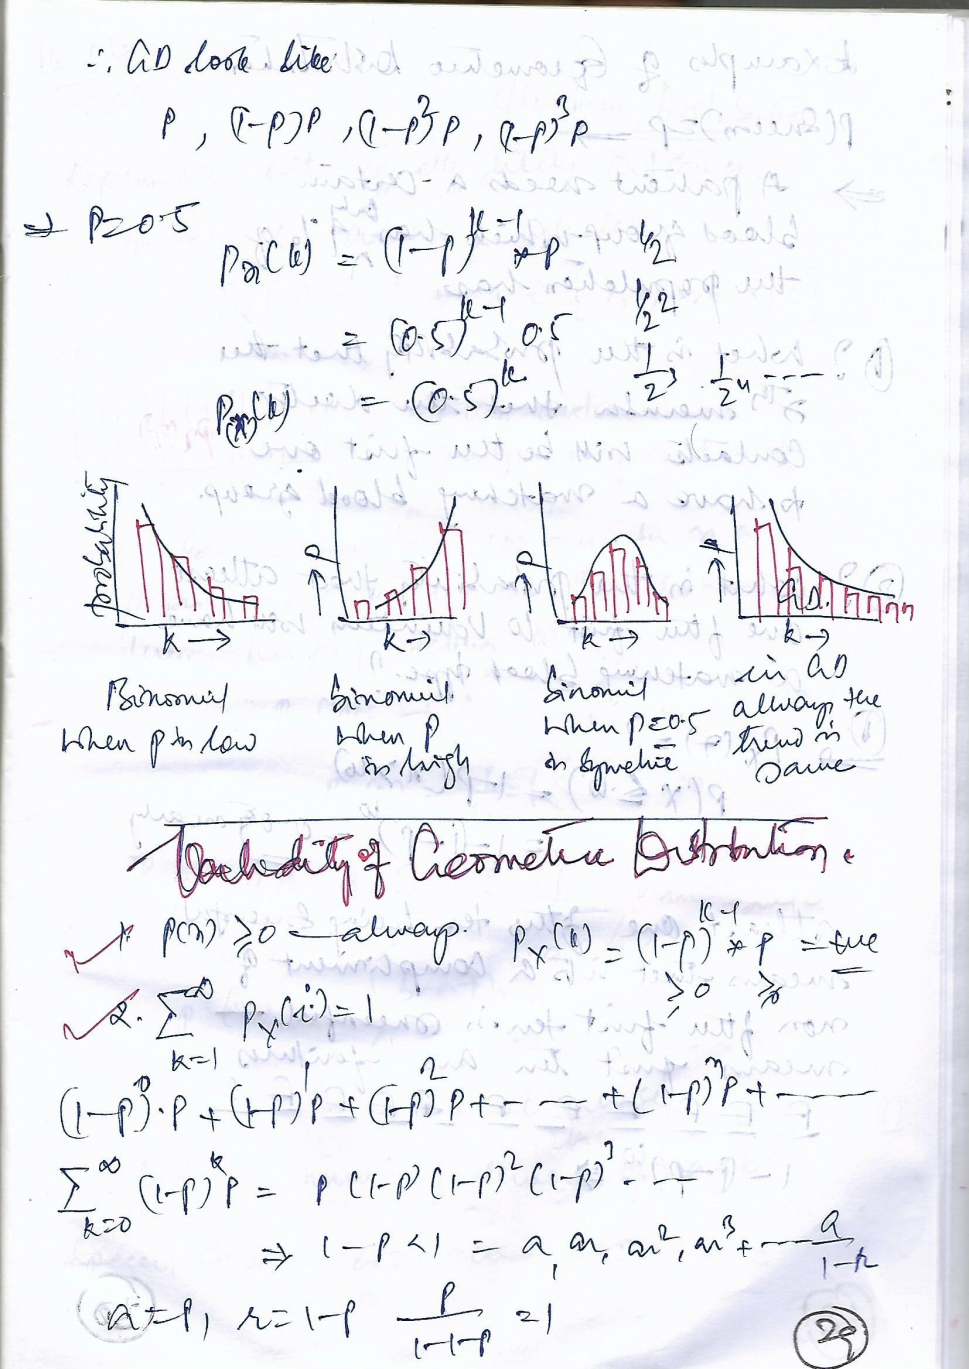 ∴ GD look like
P, (1-p)P, (1-p)²P, (1-p)³P
⇒ P=0.5
Px(k) = (1-p)^(k-1) * p   1/2
= (0.5)^(k-1) 0.5   1/2²
Px(k) = (0.5)^k   1/2³, 1/2⁴ ----
probability P P P
GD.
k→ k→ k→ k→
Binomial when p is low
Binomial when P is high
Binomial when P=0.5 is Symetric
in GD always the trend is same
Validity of Geometric Distribution.
1. P(x) ≥0 – always. Px(k) = (1-p)^(k-1) * p = +ve
≥0 ≥0
2. ∑_(k=1)^∞ Px(i) = 1
(1-p)⁰·p + (1-p)¹P + (1-p)²P + - -- + (1-p)ⁿP + ----
∑_(k=0)^∞ (1-p)^k P = P (1-P) (1-p)² (1-p)³ - --
⇒ 1-P <1 = a, ar, ar², ar³ + --- a/(1-r)
a=P, r=1-p   P/(1-1-p) = 1
29